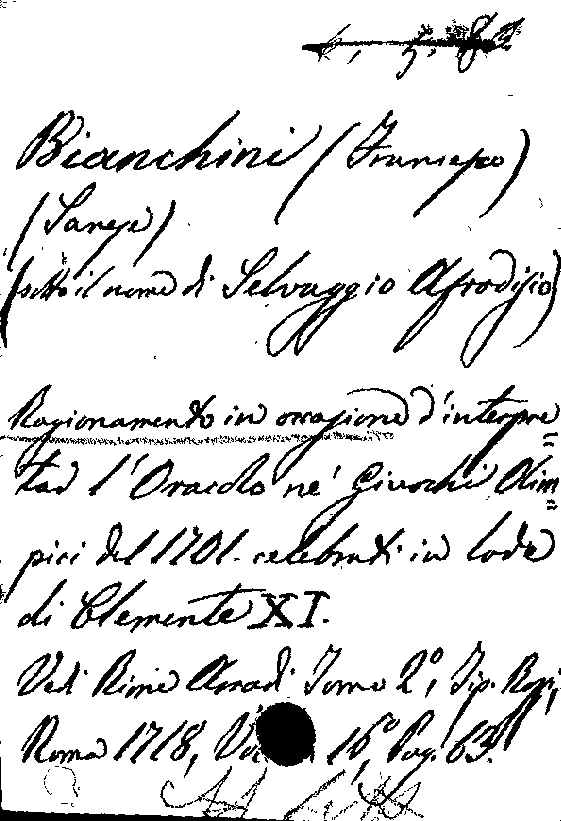 6, 5, 82
Bianchini (Francesco)
(Sanese)
(sotto il nome di Selvaggio Afrodisio)
Ragionamento in occasione d'interpre=
tar l'Oracolo ne' Giuochi Olim=
pici del 1701. celebrati in lode
di Clemente XI.
Vedi Rime Arcadi Tomo 2º, Tip. Rossi,
Roma 1718, in 16º, Pag. 63.